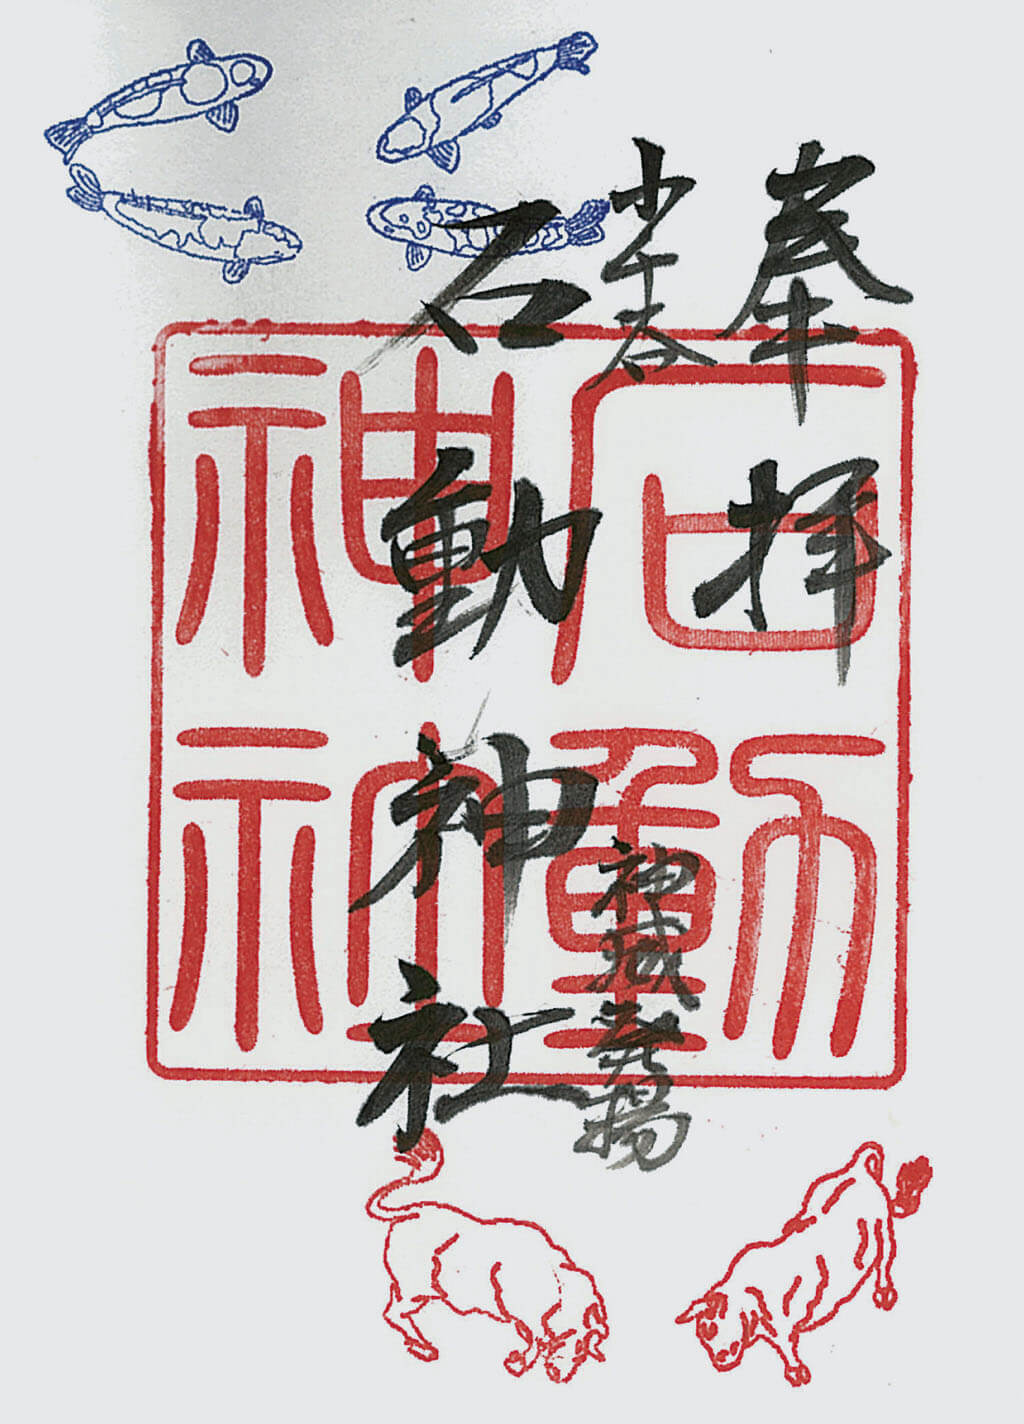 奉拝
小千谷 神威発揚
石動神社
石動
神社